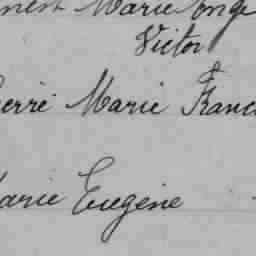 Marie Ange
Victor
Pierre Marie Franc
Marie Eugène